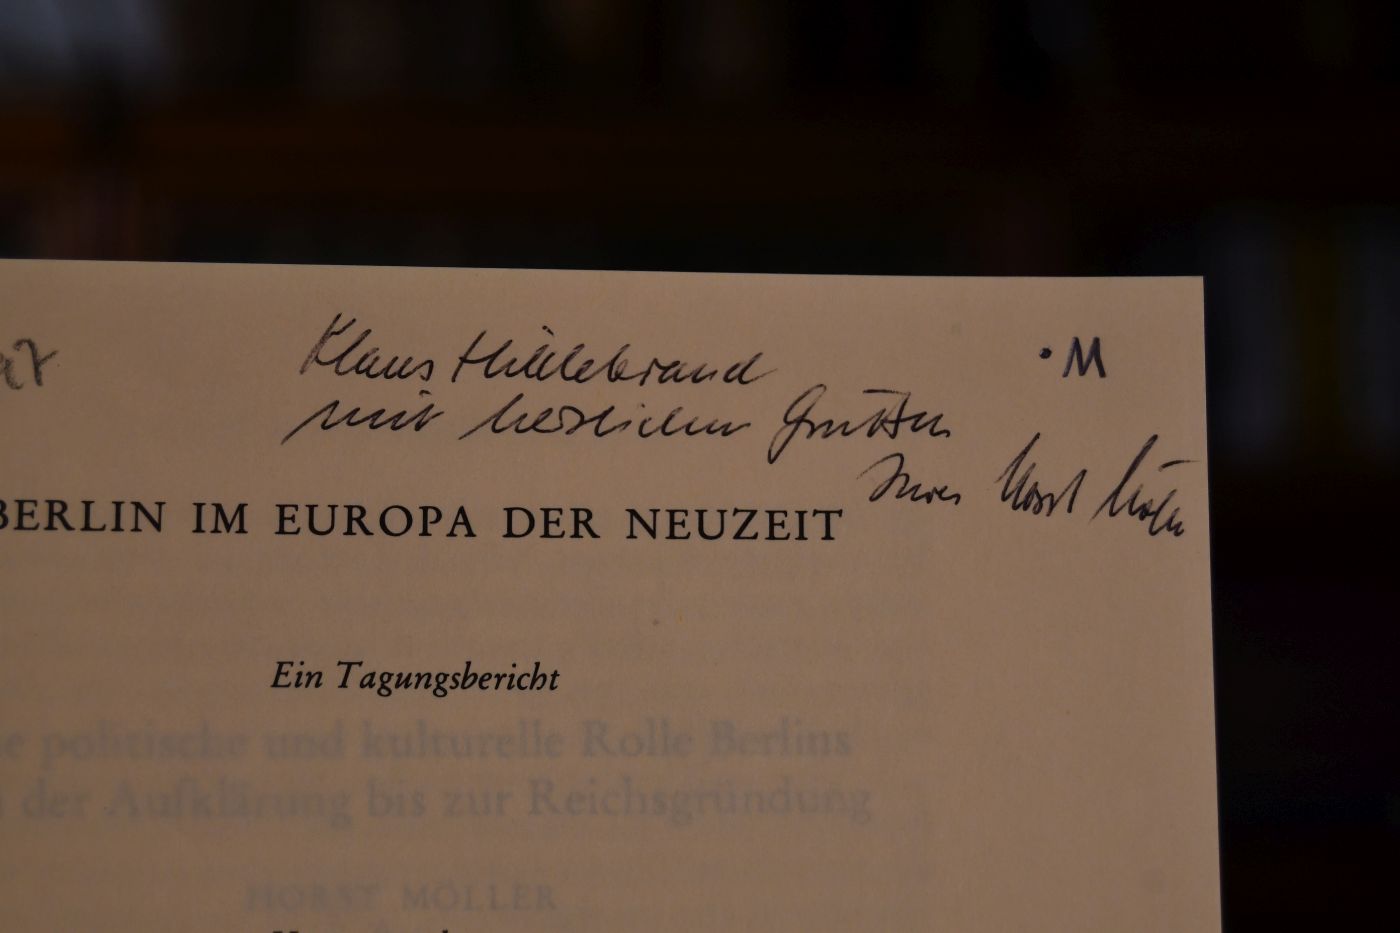 Klaus Hildebrand
· M
mit herzlichen Grüßen
Ihres Horst Möller
BERLIN IM EUROPA DER NEUZEIT
Ein Tagungsbericht
politische und kulturelle Rolle Berlins
der Aufklärung bis zur Reichsgründung
HORST MÖLLER